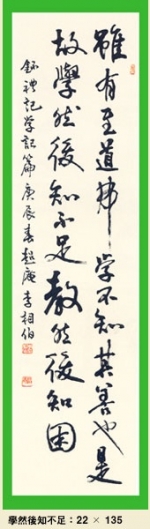 雖有至道弗學不知其善也是
故學然後知不足敎然後知困
錄禮記学記篇庚辰春 李相伯
學然後知不足 : 22 × 135